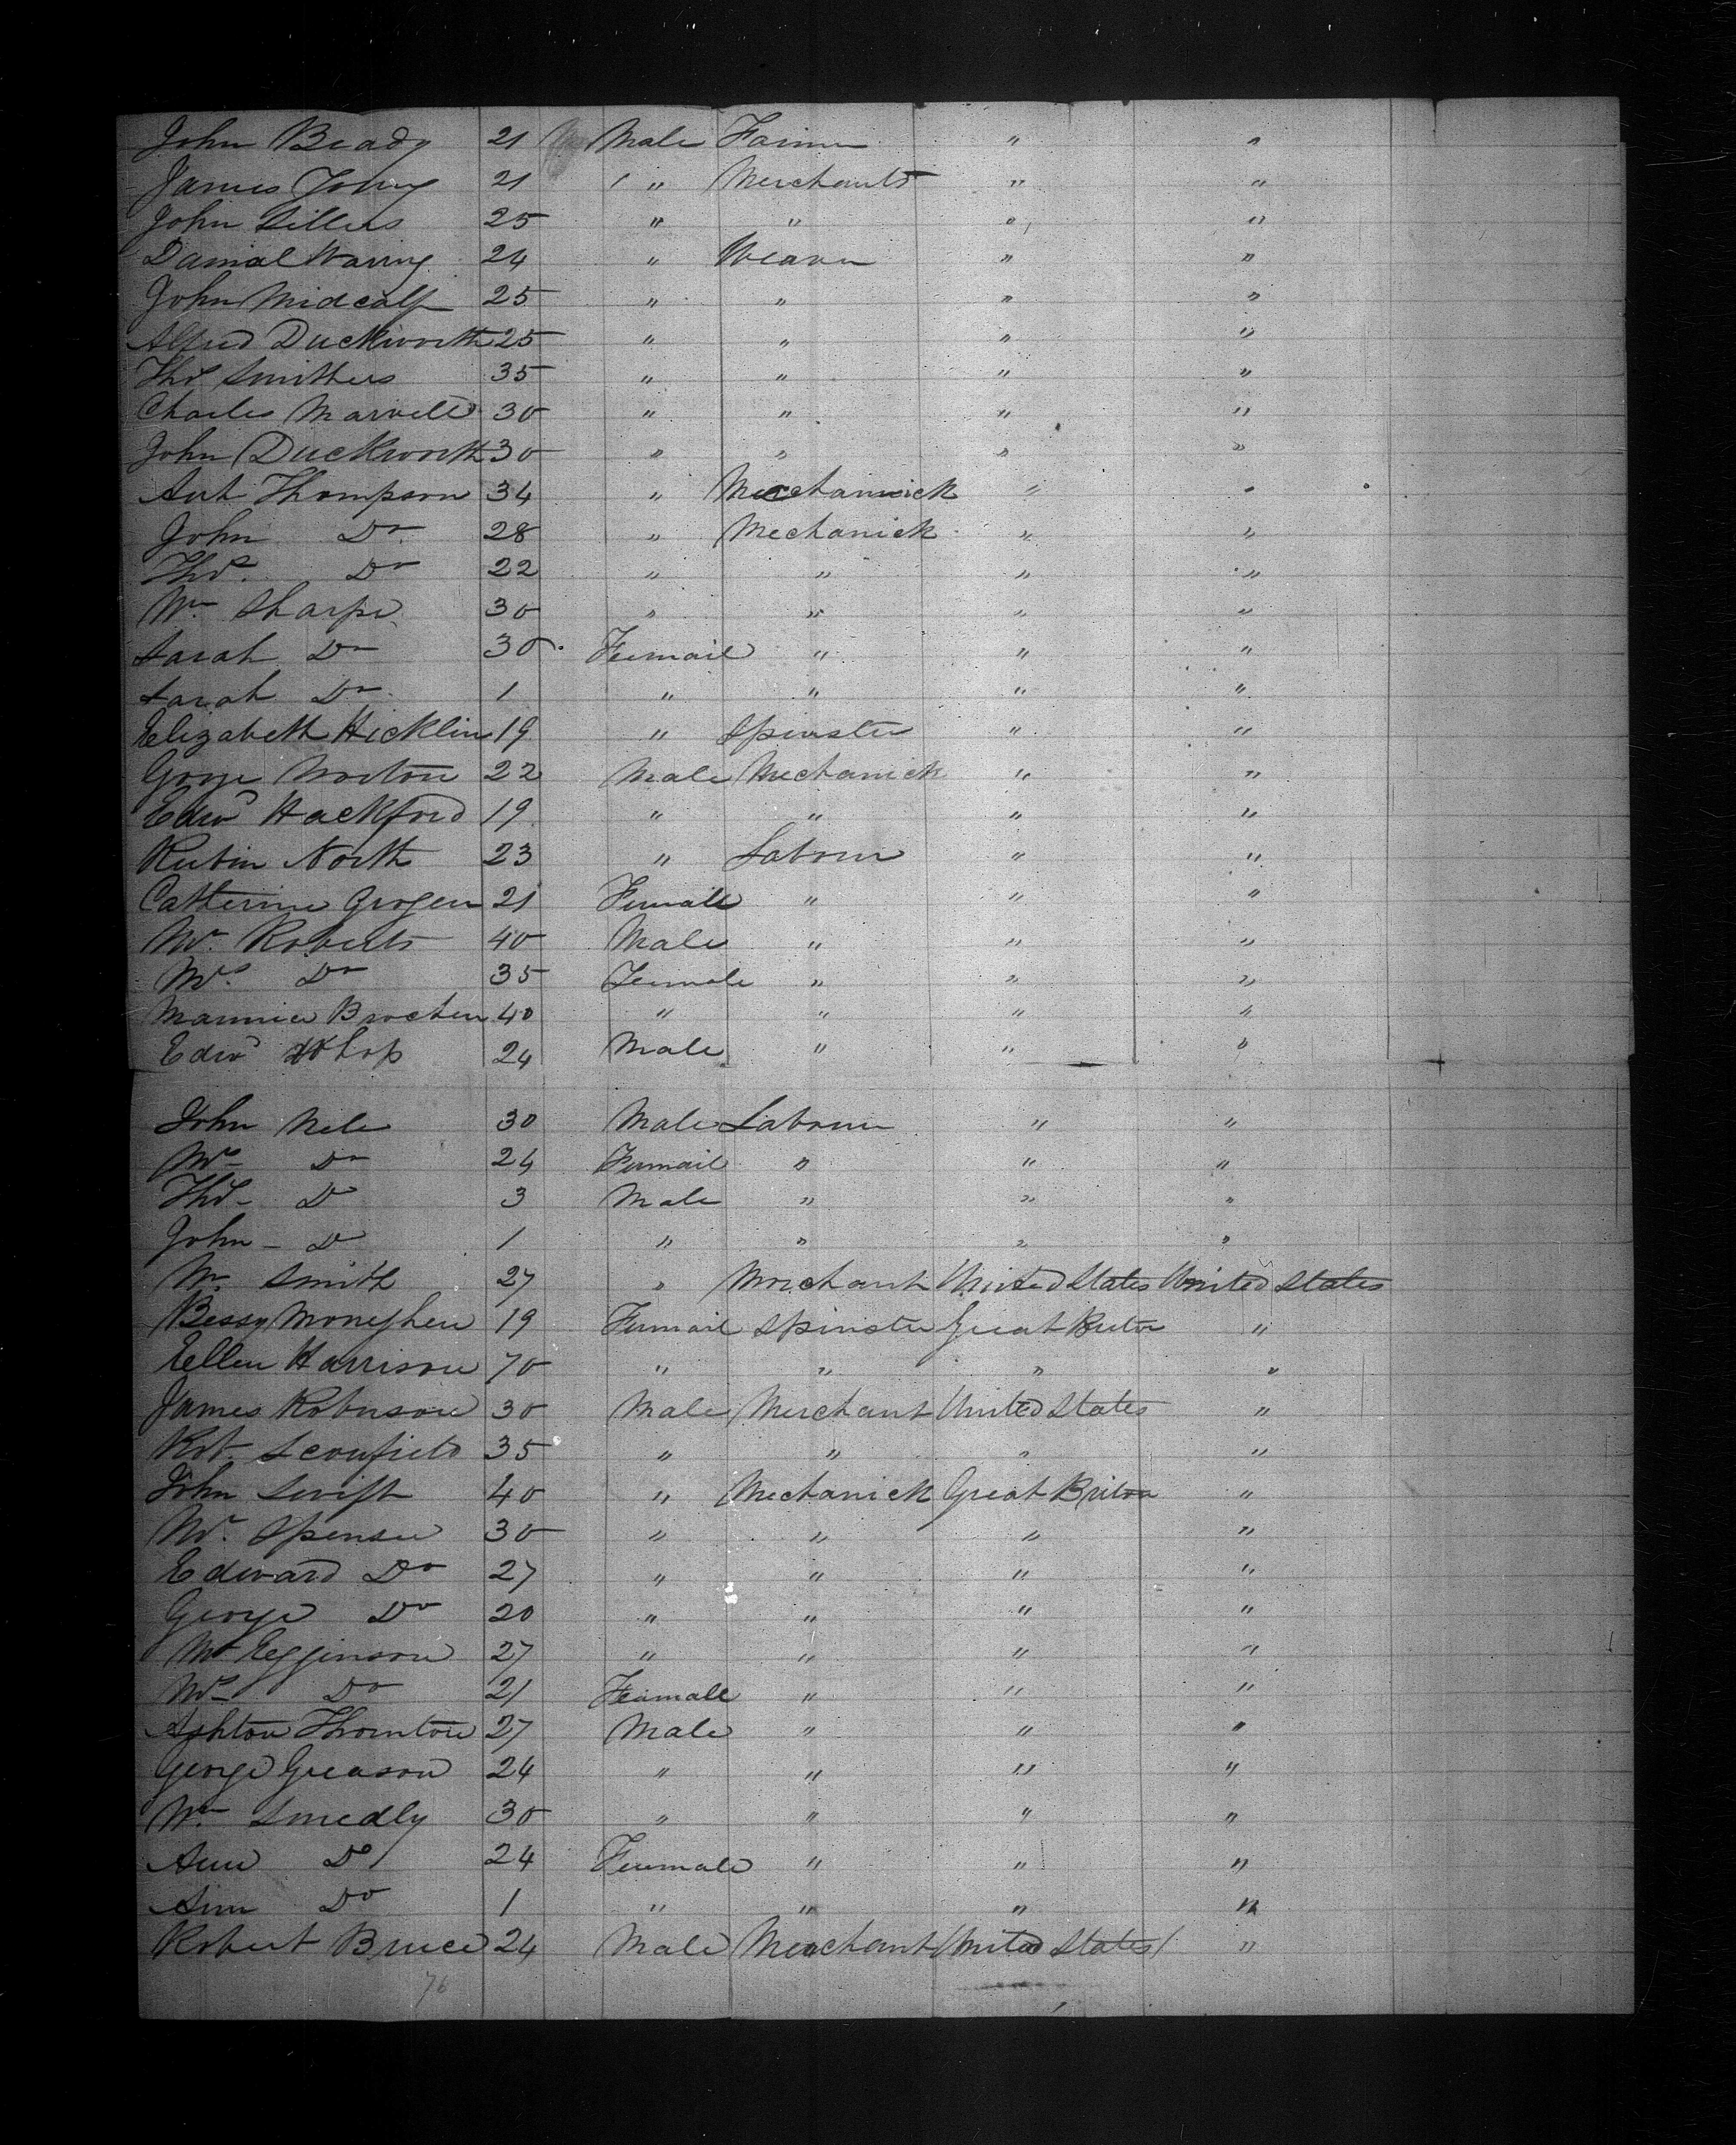 John Brady 21 Male Farmer " "
James Young 21 " Merchants " "
John Sillers 25 " " " "
Danial Waring 24 " Weaver " "
John Midcalf 25 " " " "
Alfred Duckworth 25 " " " "
Thos Smithers 35 " " " "
Charles Marvell 30 " " " "
John Duckworth 30 " " " "
Thompson 34 " Mechanick " "
John Do 28 " Mechanick " "
Thos. Do 22 " " " "
Wm Sharpe 30 " " " "
Sarah Do 30 Femail " " "
Sarah Do 1 " " " "
Elizabeth Hicklin 19 " Spinster " "
Gorge Norton 22 Male Mechanick " "
Edwd Hackford 19 " " " "
Rubin North 23 " Labourer " "
Catterine Grogen 21 Female " " "
Mr. Roberts 40 Male " " "
Mrs. Do 35 Female " " "
Brochen 40 " " " "
Edwd 24 Male " " "
John Nele 30 Male Labourer " "
Mrs Do 24 Femail " " "
Thos Do 3 Male " " "
John Do 1 " " " "
Mr Smith 27 " Merchant United States United States
Bessy Moneghen 19 Femail Spinster Great Briton "
Ellen Harrison 70 " " " "
James Robinson 30 Male Merchant United States "
Robt. Scoufield 35 " " " "
John Swift 40 " Mechanick Great Briton "
Mr. Spenser 30 " " " "
Edward Do 27 " " " "
George Do 20 " " " "
Mr Egginson 27 " " " "
Mrs Do 21 Female " " "
Ashton Thornton 27 Male " " "
George Greason 24 " " " "
Wm Smedly 30 " " " "
Ann Do 24 Female " " "
Ann Do 1 " " " "
Robert Bruce 24 Male Merchant United States "
76